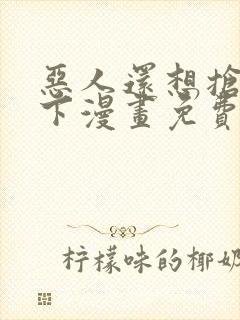 惡人還想搶
下漫畫免費
柠檬味的椰奶